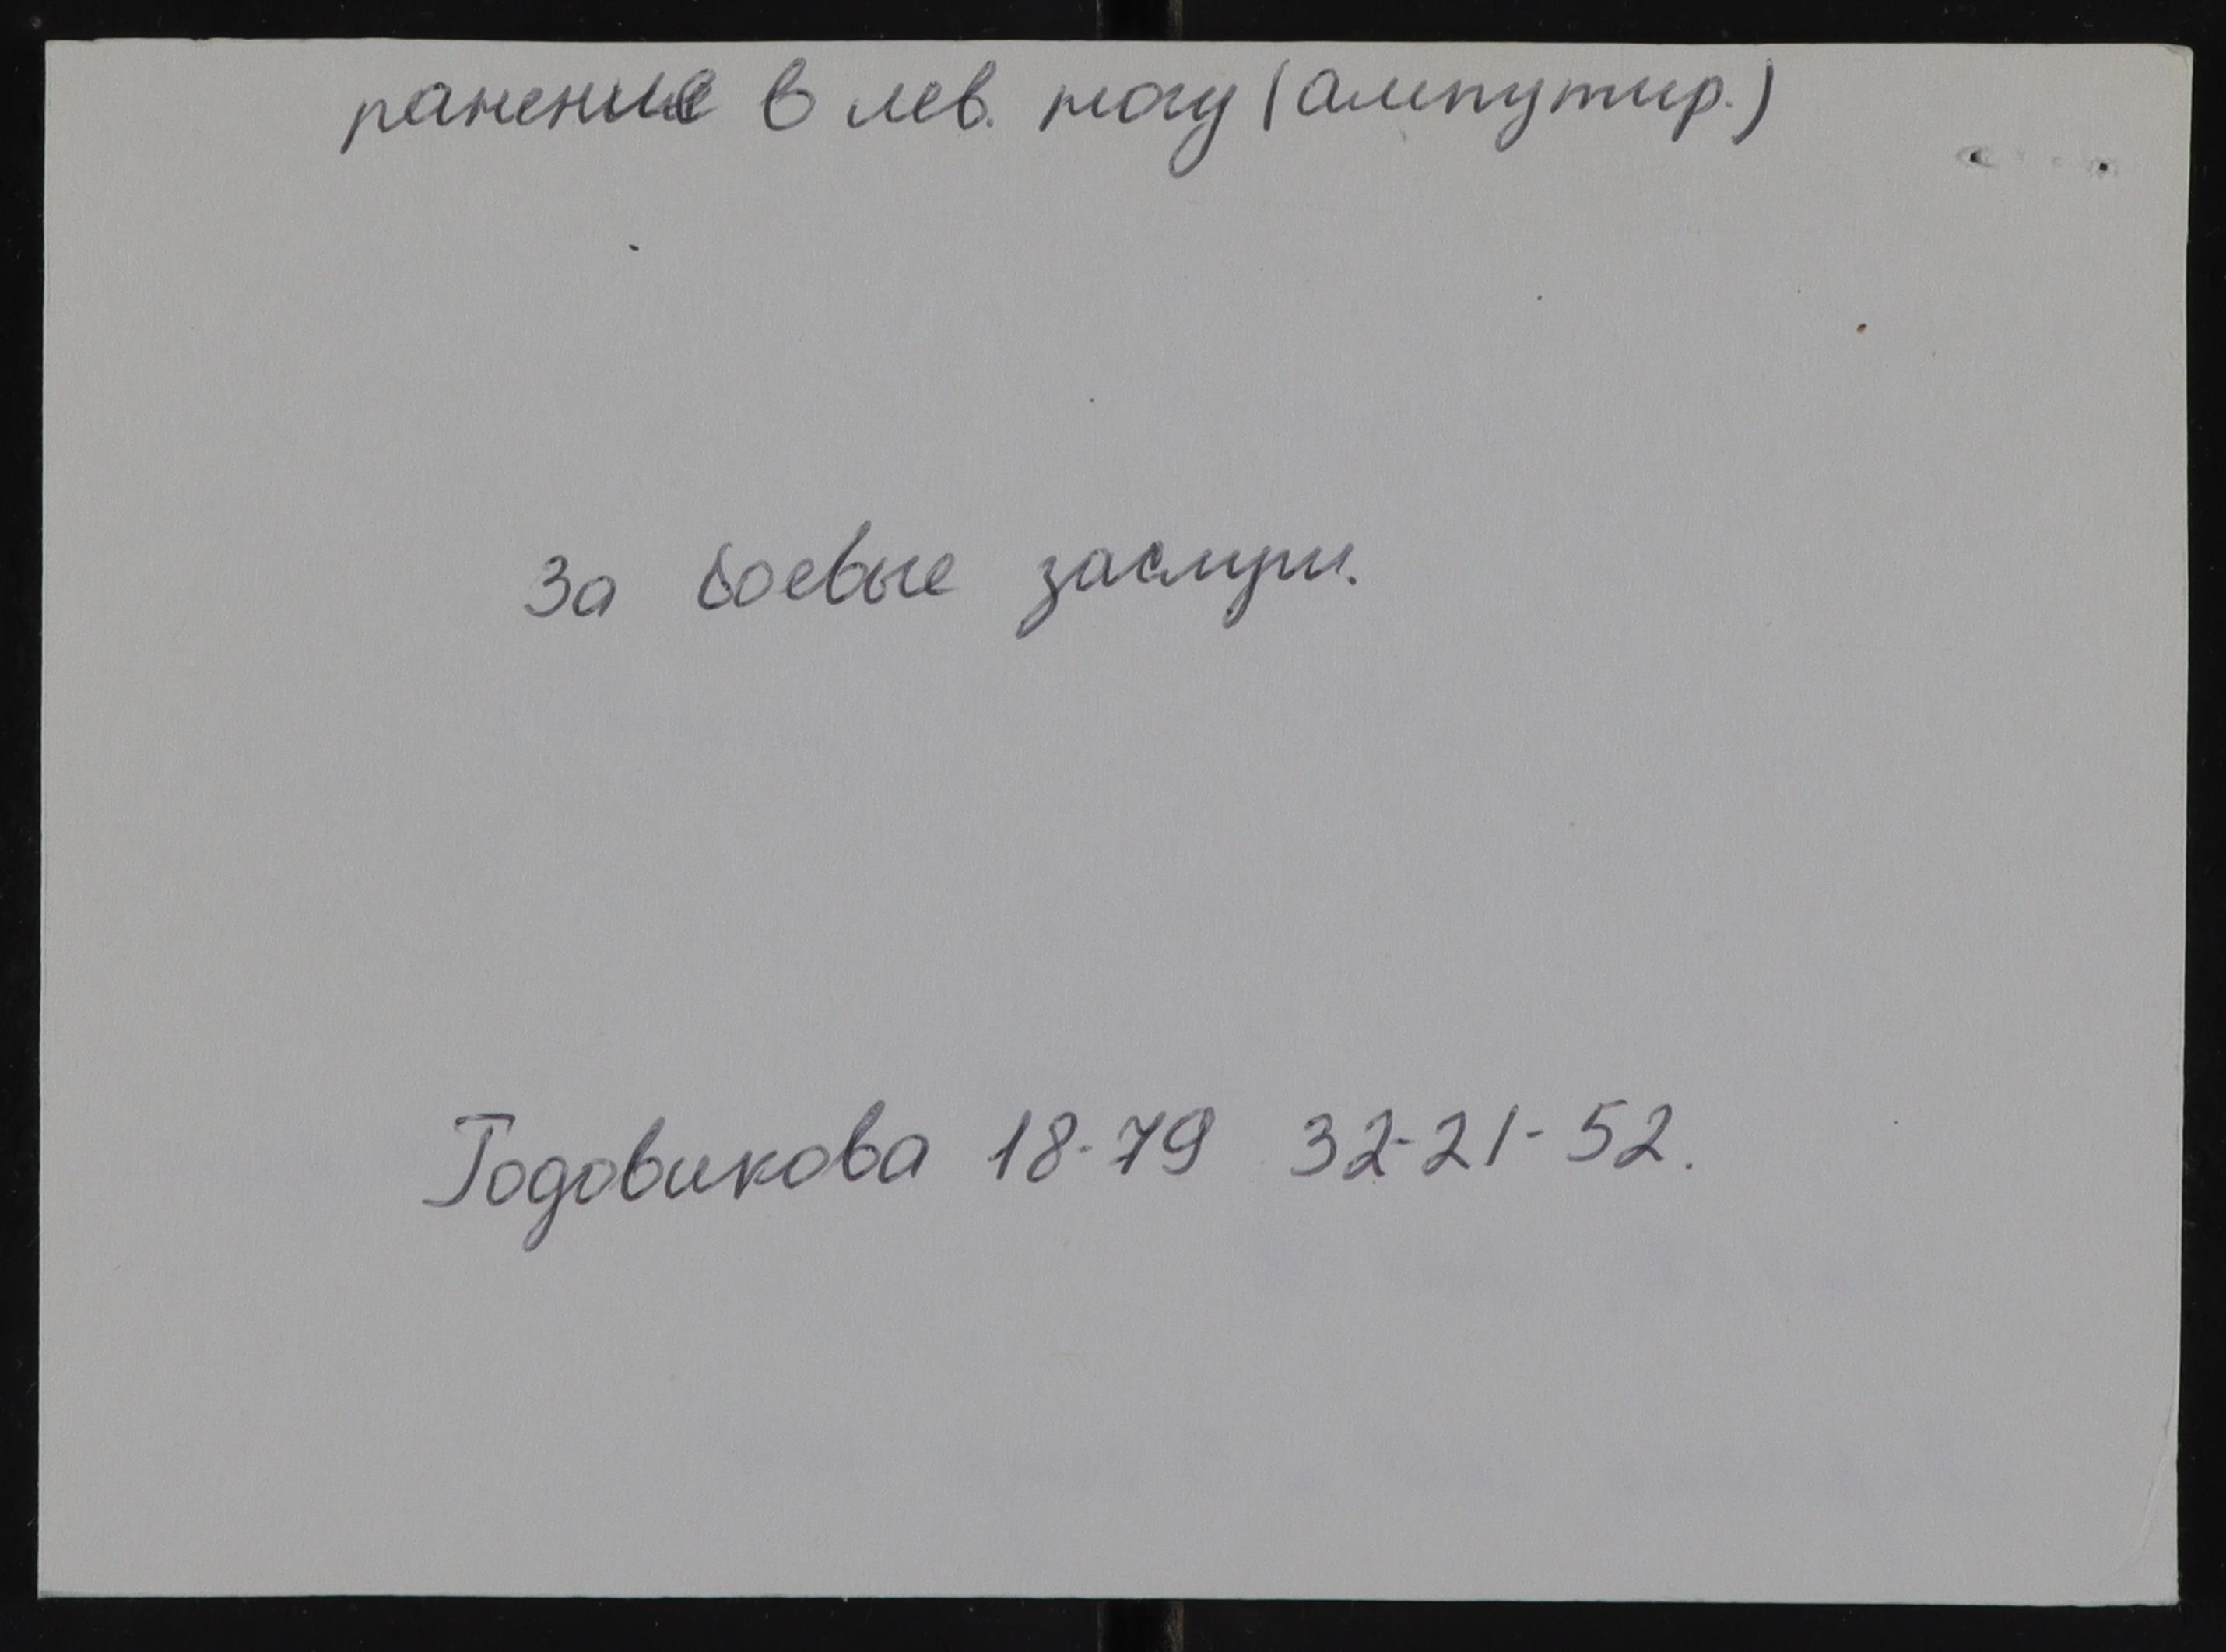 ранение в лев. ногу (ампутир.)
За боевые заслуги.
Годовикова 18-79 32-21-52.